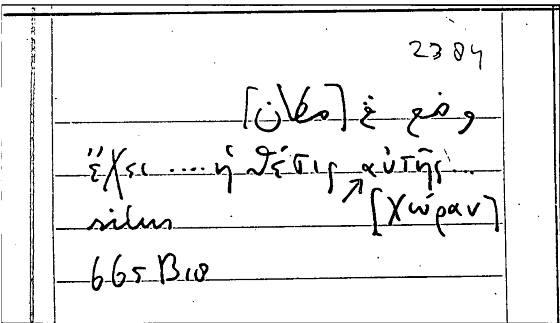 2384
وضع غ [مكان]
ἔχει .... ἡ θέσις αὐτῆς ...
[χώραν]
situs
665 B18